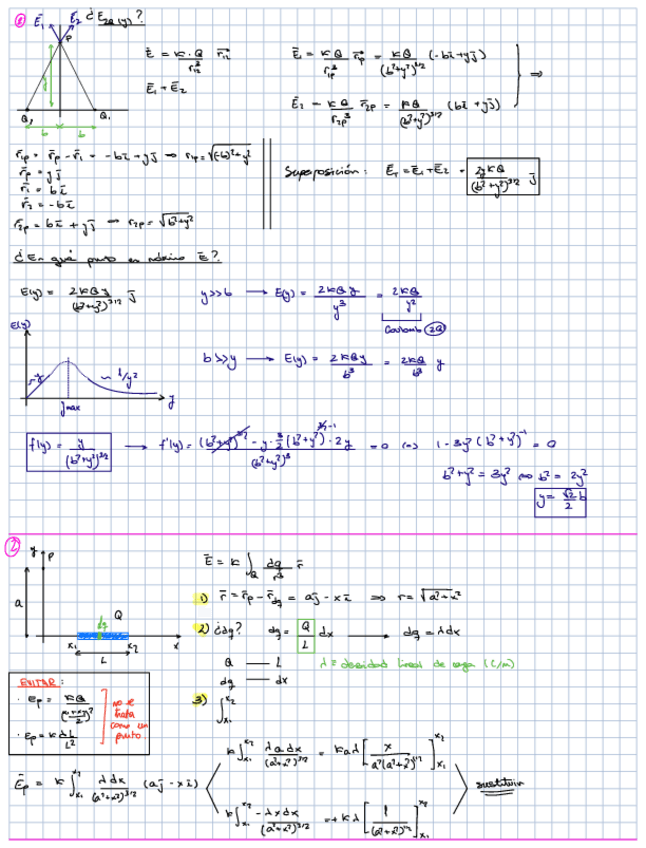 ① ¿E₂Q(y)?
E⃗₁ E⃗₂ P
Q₂ Q₁
b b
E⃗ = K·Q / r₁₂³ r⃗₁₂
E⃗₁ + E⃗₂
E⃗₁ = KQ / r₁p³ r⃗₁p = KQ / (b²+y²)^3/2 (-bi⃗+yj⃗)
E⃗₂ = KQ / r₂p³ r⃗₂p = KQ / (b²+y²)^3/2 (bi⃗+yj⃗) ⇒
r⃗₁p = r⃗p - r⃗₁ = -bi⃗ + yj⃗ ⇒ r₁p = √((-b)²+y²)
r⃗p = yj⃗
r⃗₁ = bi⃗
r⃗₂ = -bi⃗
r⃗₂p = bi⃗ + yj⃗ ⇒ r₂p = √(b²+y²)
Superposición: E⃗T = E⃗₁+E⃗₂ = 2yKQ / (b²+y²)^3/2 j⃗
¿En qué punto es máximo E⃗?
E(y) = 2KQy / (b²+y²)^3/2 j⃗
y>>b → E(y) = 2KQy / y³ = 2KQ / y²
Coulomb 2Q
b>>y → E(y) = 2KQy / b³ = 2KQ / b³ y
E(y)
~y ~1/y²
ymax y
f(y) = y / (b²+y²)^3/2 → f'(y) = (b²+y²)^3/2 - y·3/2(b²+y²)^3/2-1·2y / (b²+y²)³ = 0 ⇔ 1-3y²(b²+y²)⁻¹ = 0
b²+y² = 3y² ⇔ b² = 2y²
y = √2/2 b
② y P
a
dq Q
x₁ x₂ x
L
E⃗ = K ∫Q dq / r³ r⃗
1) r⃗ = r⃗p - r⃗dq = aj⃗ - xi⃗ ⇒ r = √(a²+x²)
2) ¿dq? dq = Q/L dx → dq = λdx
Q — L λ ≡ densidad lineal de carga (C/m)
dq — dx
3) ∫x₁^x₂
EVITAR:
· Ep = KQ / (x₁+x₂ / 2)²
· Ep = KλL / L²
no se trata como un punto.
E⃗p = K ∫x₁^x₂ λdx / (a²+x²)^3/2 (aj⃗ - xi⃗)
K ∫x₁^x₂ λadx / (a²+x²)^3/2 = Kaλ [x / a²(a²+x²)^1/2]x₁^x₂
K ∫x₁^x₂ -λxdx / (a²+x²)^3/2 = +Kλ [1 / (a²+x²)^1/2]x₁^x₂
sustituir